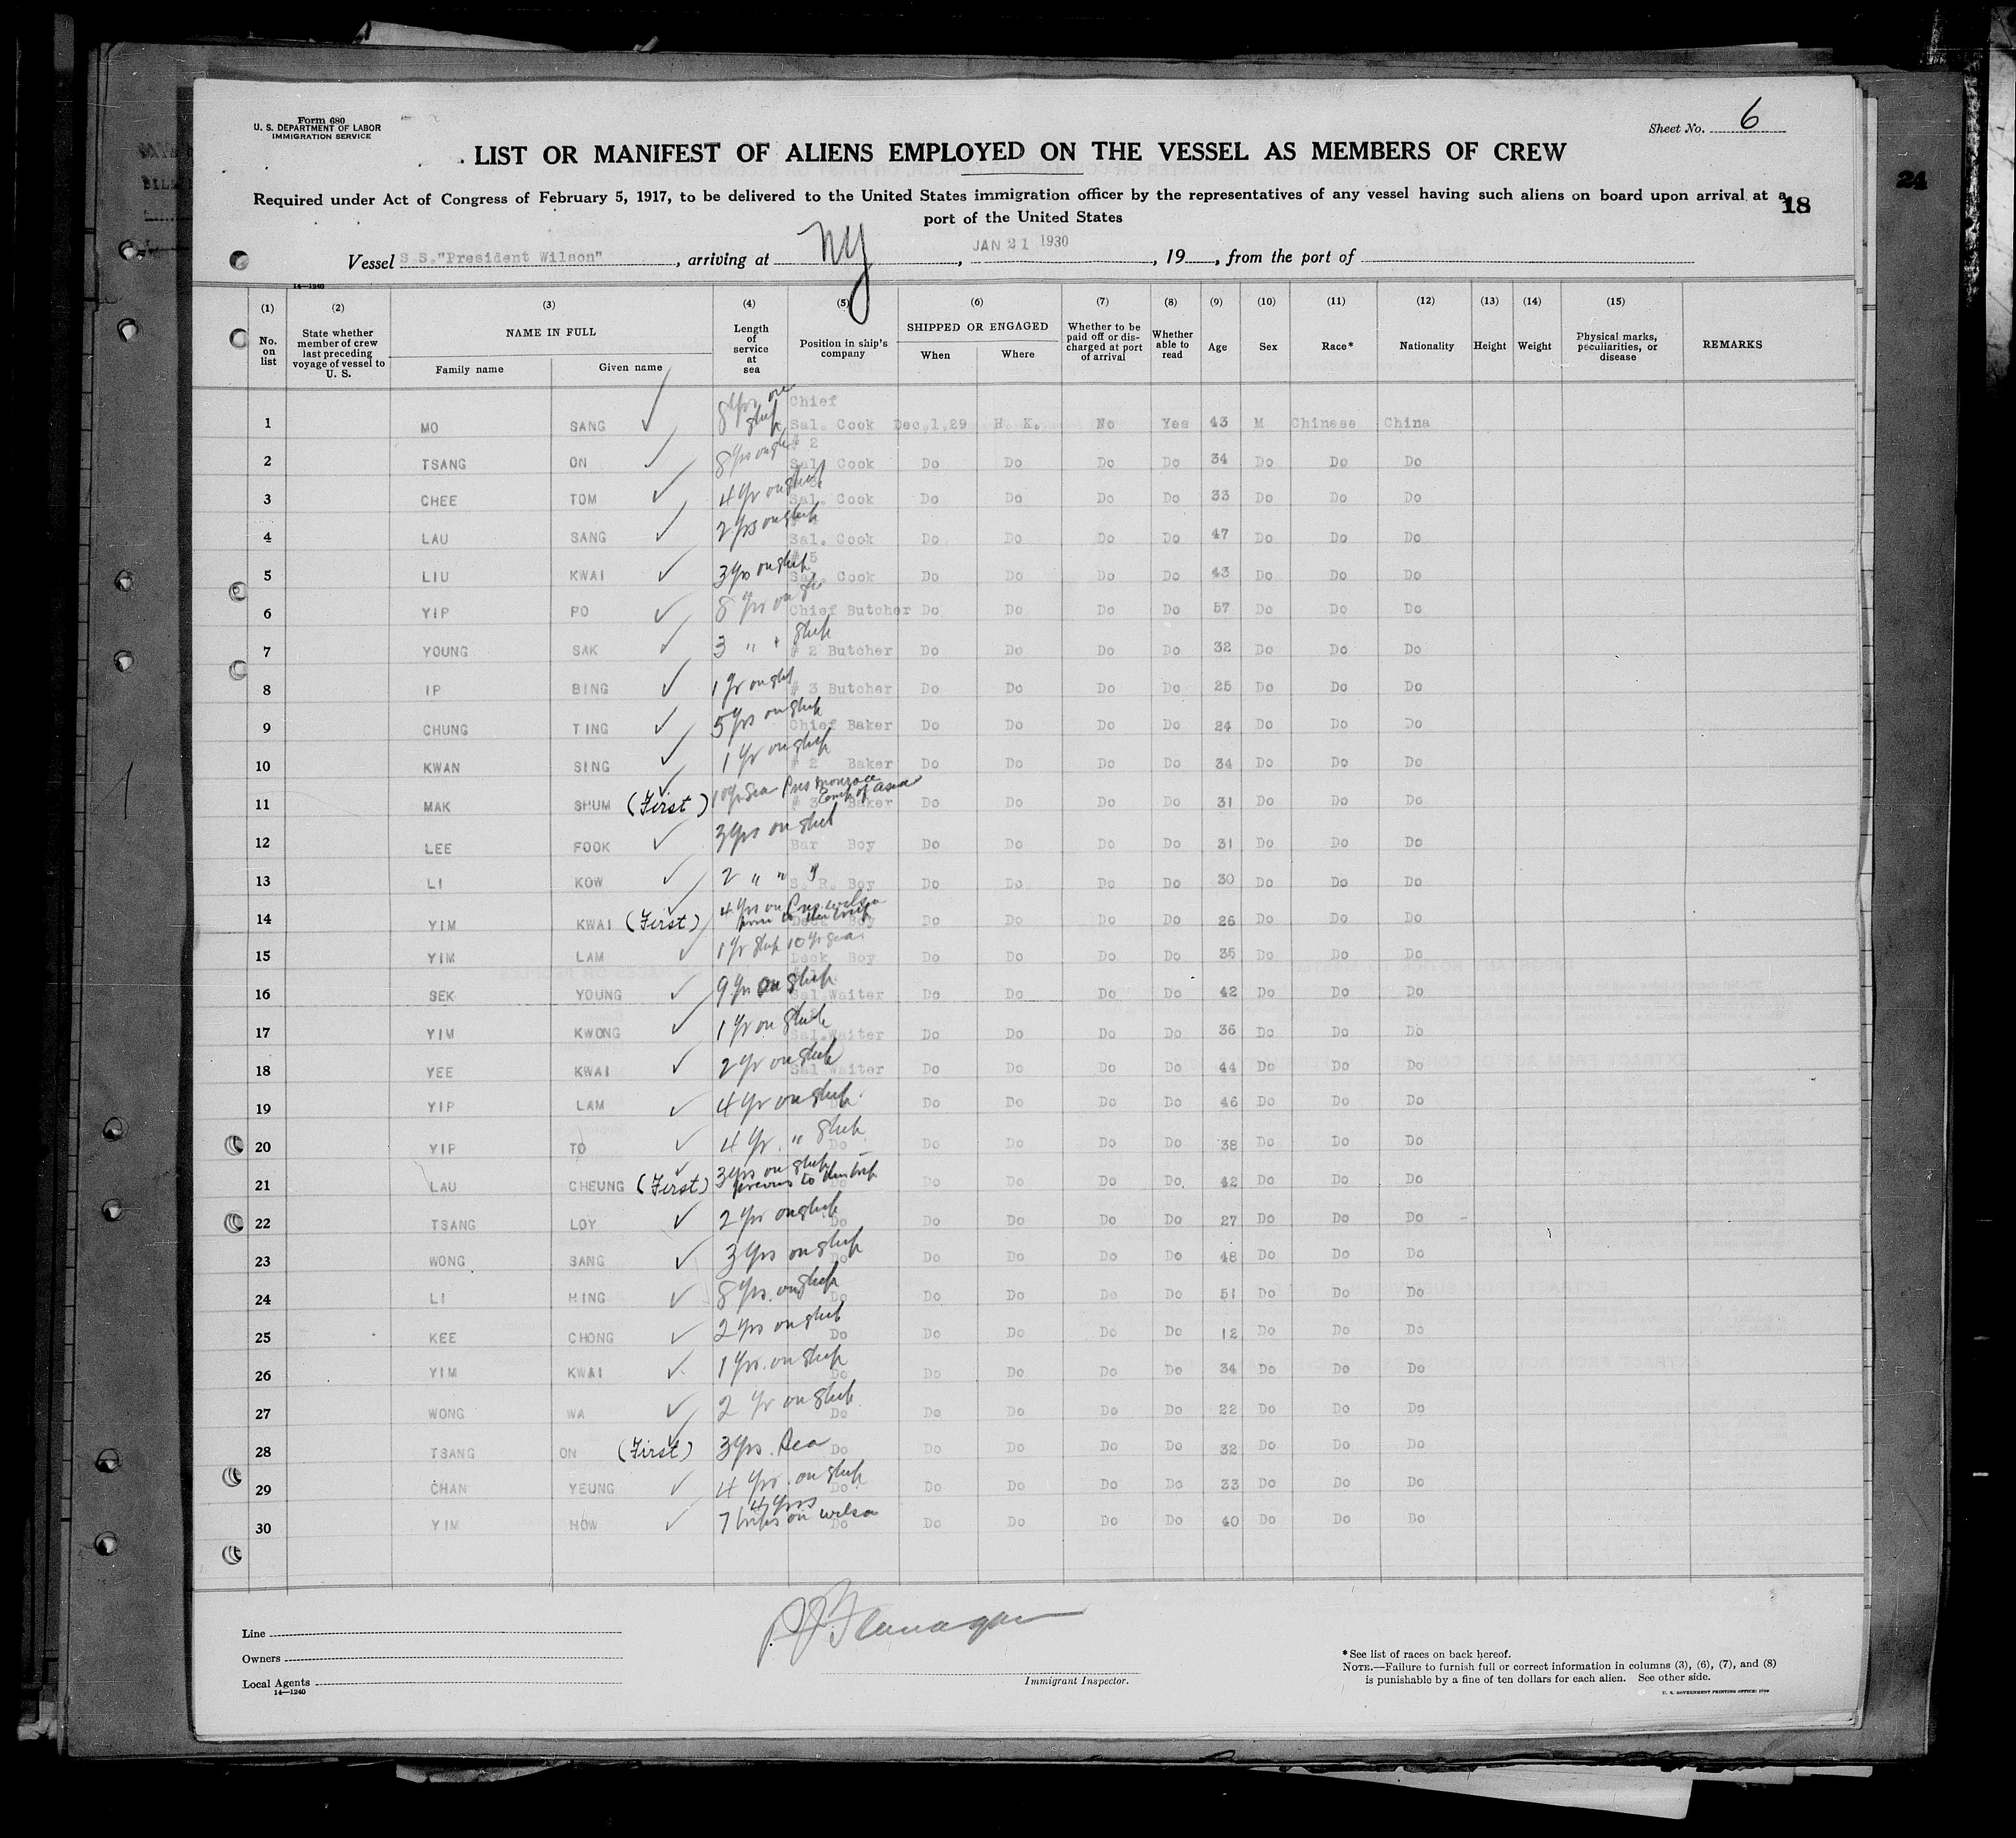 Form 680
U. S. DEPARTMENT OF LABOR
IMMIGRATION SERVICE
Sheet No. 6
LIST OR MANIFEST OF ALIENS EMPLOYED ON THE VESSEL AS MEMBERS OF CREW
Required under Act of Congress of February 5, 1917, to be delivered to the United States immigration officer by the representatives of any vessel having such aliens on board upon arrival at a
port of the United States
18
24
Vessel S.S."President Wilson", arriving at NY, JAN 21 1930, 19__, from the port of
14—1240
(1) (2) (3) (4) (5) (6) (7) (8) (9) (10) (11) (12) (13) (14) (15)
No. on list
State whether member of crew last preceding voyage of vessel to U. S.
NAME IN FULL
Family name
Given name
Length of service at sea
Position in ship's company
SHIPPED OR ENGAGED
When
Where
Whether to be paid off or discharged at port of arrival
Whether able to read
Age
Sex
Race*
Nationality
Height
Weight
Physical marks, peculiarities, or disease
REMARKS
1 MO SANG ✓ 8 Yrs on ship Chief Sal. Cook Dec.1,29 H. K. No Yes 43 M Chinese China
2 TSANG ON ✓ 8 Yrs on ship # 2 Sal. Cook Do Do Do Do 34 Do Do Do
3 CHEE TOM ✓ 4 Yr on ship Sal. Cook Do Do Do Do 33 Do Do Do
4 LAU SANG ✓ 2 Yrs on ship Sal. Cook Do Do Do Do 47 Do Do Do
5 LIU KWAI ✓ 3 Yrs on ship # 5 Sal. Cook Do Do Do Do 43 Do Do Do
6 YIP PO ✓ 8 Yrs on ship Chief Butcher Do Do Do Do 57 Do Do Do
7 YOUNG SAK ✓ 3 " " ship # 2 Butcher Do Do Do Do 32 Do Do Do
8 IP BING ✓ 1 Yr on ship # 3 Butcher Do Do Do Do 25 Do Do Do
9 CHUNG TING ✓ 5 Yrs on ship Chief Baker Do Do Do Do 24 Do Do Do
10 KWAN SING ✓ 1 Yr on ship # 2 Baker Do Do Do Do 34 Do Do Do
11 MAK SHUM (First) ✓ 10 Yr Sea Pres Monroe Emp of Asia # 3 Baker Do Do Do Do 31 Do Do Do
12 LEE FOOK ✓ 3 Yrs on ship Bar Boy Do Do Do Do 31 Do Do Do
13 LI KOW ✓ 2 " " " S. R. Boy Do Do Do Do 30 Do Do Do
14 YIM KWAI (First) ✓ 4 Yrs on Pres. Wilson prior to this trip Deck Boy Do Do Do Do 26 Do Do Do
15 YIM LAM ✓ 1 Yr ship 10 Yr sea Deck Boy Do Do Do Do 35 Do Do Do
16 SEK YOUNG ✓ 9 Yrs on ship Sal.Waiter Do Do Do Do 42 Do Do Do
17 YIM KWONG ✓ 1 Yr on ship Sal.Waiter Do Do Do Do 36 Do Do Do
18 YEE KWAI ✓ 2 Yr on ship Sal.Waiter Do Do Do Do 44 Do Do Do
19 YIP LAM ✓ 4 Yr on ship Do Do Do Do Do 46 Do Do Do
20 YIP TO ✓ 4 Yr. " ship Do Do Do Do Do 38 Do Do Do
21 LAU CHEUNG (First) ✓ 3 Yrs on ship previous to this trip Do Do Do Do Do 42 Do Do Do
22 TSANG LOY ✓ 2 Yrs on ship Do Do Do Do Do 27 Do Do Do
23 WONG SANG ✓ 3 Yrs on ship Do Do Do Do Do 48 Do Do Do
24 LI HING ✓ 8 Yrs. on ship Do Do Do Do Do 51 Do Do Do
25 KEE CHONG ✓ 2 Yrs on ship Do Do Do Do Do 12 Do Do Do
26 YIM KWAI ✓ 1 Yrs. on ship Do Do Do Do Do 34 Do Do Do
27 WONG WA ✓ 2 Yr on ship Do Do Do Do Do 22 Do Do Do
28 TSANG ON (First) ✓ 3 Yrs. Sea Do Do Do Do Do 32 Do Do Do
29 CHAN YEUNG ✓ 4 Yrs. on ship Do Do Do Do Do 33 Do Do Do
30 YIM HOW ✓ 4 Yrs 7 trips on Wilson Do Do Do Do Do 40 Do Do Do
P J Flanagan
Immigrant Inspector.
Line
Owners
Local Agents
14—1240
*See list of races on back hereof.
NOTE.—Failure to furnish full or correct information in columns (3), (6), (7), and (8)
is punishable by a fine of ten dollars for each alien. See other side.
U. S. GOVERNMENT PRINTING OFFICE: 1929